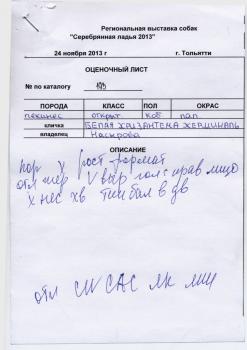 Региональная выставка собак
"Серебрянная ладья 2013"
24 ноября 2013 г г. Тольятти
ОЦЕНОЧНЫЙ ЛИСТ
№ по каталогу
ПОРОДА КЛАСС ПОЛ ОКРАС
пекинес открыт коб пал
кличка БЕЛАЯ ХРИЗАНТЕМА
владелец
ОПИСАНИЕ
пор х рост формат
отл пер V выр гол справ лицо
х нес хв тип бал в дв
отл CW CAC ЛК